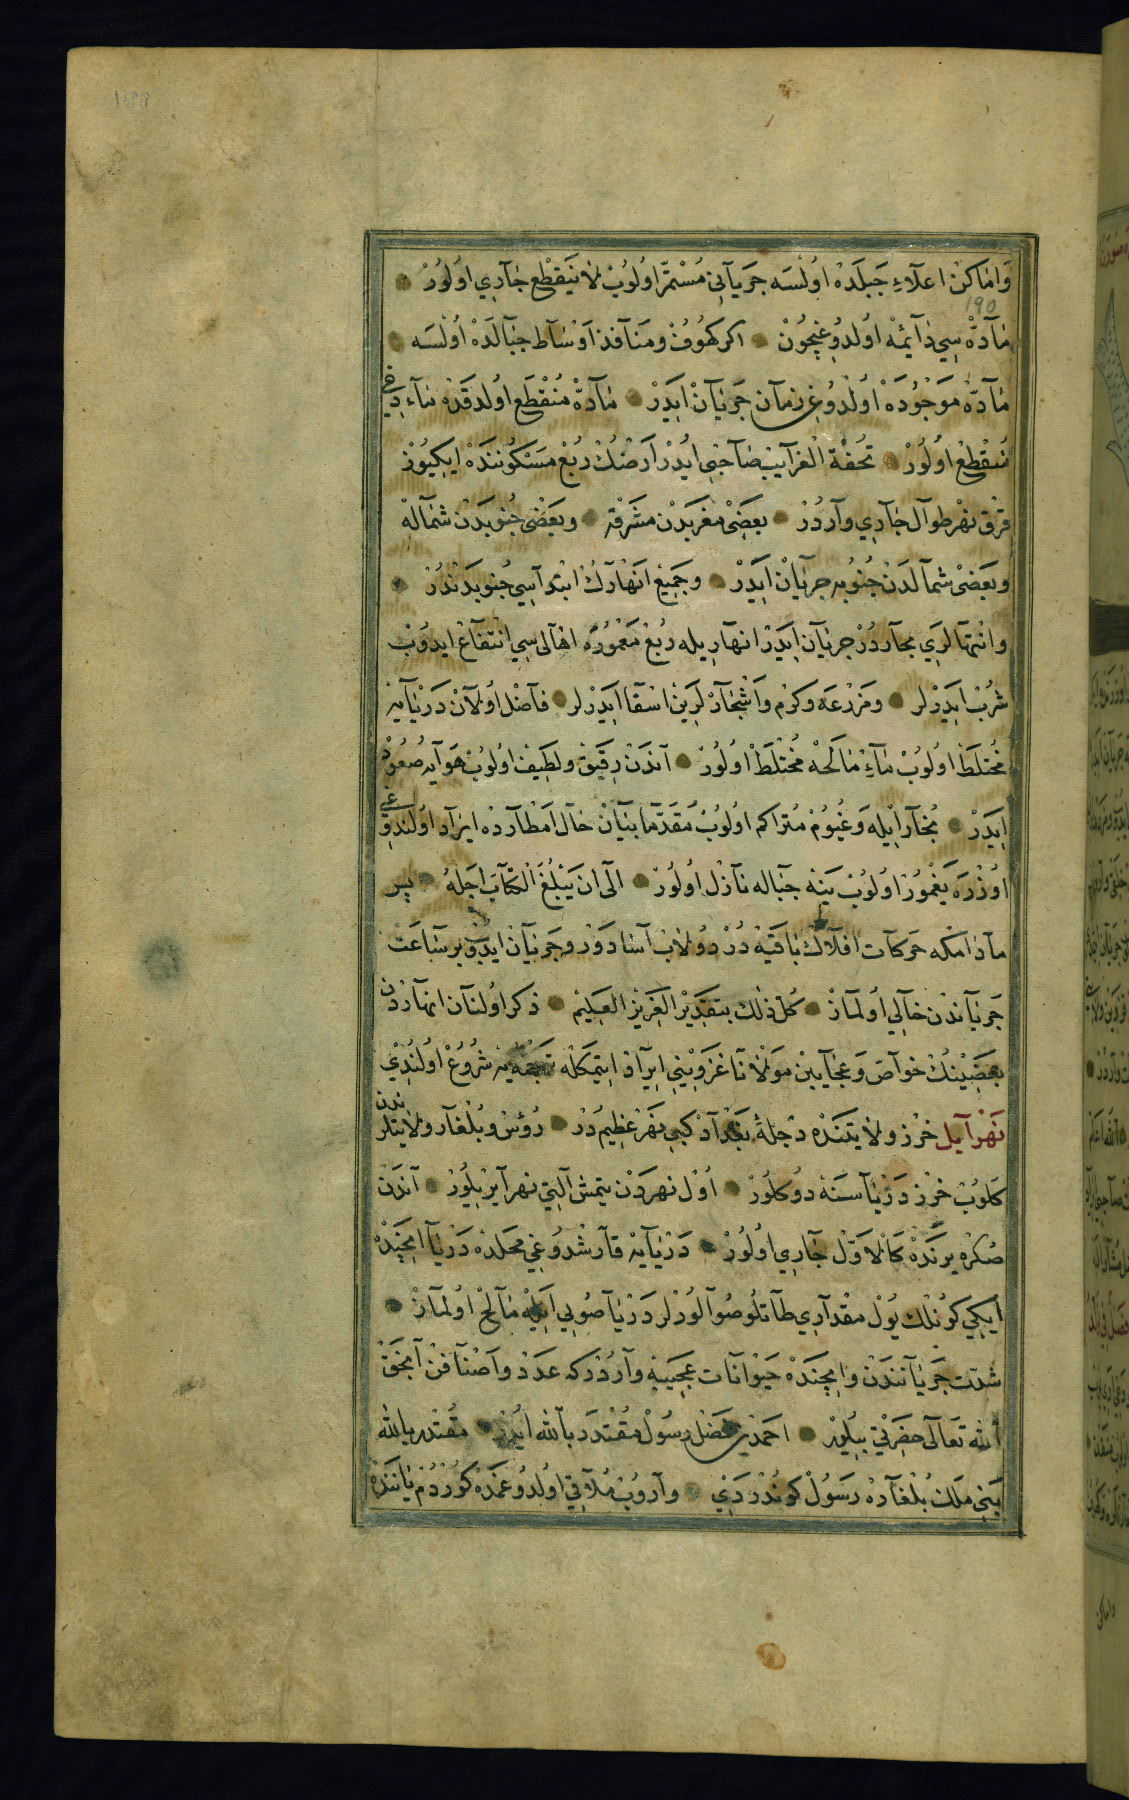 وَاَمَاكِنْ اعلَاءِ جَبَلَدَهْ اُولْسَه جَرَيَانِي مُسْتَمِرّ اُولُوبْ لَا يَنْقَطِعْ جَارِي اُولُورْ
190
مَادَّهْ سِي دَائِمَهْ اُولدُوغِيچُونْ اكر كُهُوفْ ومَنَافِذ اَوْسَاط جِبَالدَهْ اُولْسَه
مَادَّه مَوْجُودَهْ اُولْدُوغِي زمَان جَرَيَانْ ايدَرْ مَادَّه مُنْقَطِع اُولدقدَه مَاء دَخِي
مُنْقَطِعْ اُولُورْ تُحفَةُ الْغَرَايِبْ صَاحِبِي ايدُرْ اَرْضُكْ رُبْعِ مَسْكُونِنْدَه ايكِيُوزْ
قِرْقْ نَهْر طوال جَارِي وَاردُرْ بعَضِىْ مَغْربدَن مَشْرقَه وبَعَضِىْ جُنُوبدَن شمَالَه
وبَعَضِىْ شمَالدَن جُنُوبَه جريَانْ ايدَرْ وجَمِيعِ انهَارُكْ ابْتِدَاسِي جُنُوبدَندُرْ
وانْتِهَالَرِي بحَاردُرْ جريَان ايدَرْ انهَاريلَه رُبْعِ مَعْمُورَه اهَالِيسِي انْتِفَاعْ ايدُوبْ
شُرْبْ ايدَرْلر ومَزْرَعَه وكَرْم وَاشْجَارْلَرِينْ اسْقَا ايدَرْلر فَاضِل اُولَانْ دَرْيَايَه
مُخْتَلَطْ اُولُوبْ مَاءِ مَالحَه مُخْتَلَطْ اُولُورْ آندَنْ رَقِيقْ ولَطِيف اُولُوبْ هَوَايَه صُعُودْ
ايدَرْ بُخَار ايلَه وَغُيُومْ مُتَراكِم اُولُوبْ مُقَدَّمَا بَيَانْ حَال امْطَاردَه ايرَاد اُولُندوغِي
اُوزْرَه يَغْمُورْ اُولُوبْ يَنَه جِبَالَه نَازِل اُولُورْ الَى ان يَبْلُغَ الْكتَاب اَجَلَهُ پس
مَادَامكه حَركات افلَاكْ بَاقِيَه دُرْ دُولَاب آسَا دَوْر وجَرَيَانْ ايدُوبْ بر سَاعَتْ
جَريَاندَن خَالِي اُولمَازْ كُلُّ ذٰلِك بِتَقْدِيرِ الْعَزِيزِ الْعَلِيمْ ذكر اُولنَان انهَاردَن
بعَضِينُكْ خوَاصّ وَعجَايِبِن مَوْلَانَا غَزْوِينِي ايرَادْ ايتمكله ترجَمَه يَه شُرُوعْ اُولُندِي
نَهْر آيل خَزر ولَايتنده دِجْلَهٔ بَغْدَاد كبي نَهْر عَظِيمُدُرْ رُوس وبُلْغَار ولَايتلَرندن
كَلُوبْ خَزر دَرْيَاسنَه دُوكلُورْ اُول نهردَن يتمش آلتِي نهر آيرِيلُورْ آندَن
صُكرَه يرنْدَه كَالْاَوَّل جَارِي اُولُورْ دَرْيَايَه قَارشْدوغِي محلدَه دَرْيَا ايچندَه
ايكِي كُونْلُك يُول مِقْدَارِي طَاتْلُو صُو آلُورْلر دَرْيَا صُويِي ايلَه مَالِحْ اُولمَازْ
شدّت جَريَانندَن وايچندَه حَيْوَانَات عَجِيبَه وآردُرْكه عَدَدْ واَصْنَافن آنجق
الله تَعَالَى حضرَتِي بيلُورْ احمد بن فضل رسُول مقتدر بالله ايدُرْ مُقتدر بالله
بَنِي مَلِك بُلغَارَه رَسُولْ كوندردِي وَارُوبْ مُلَاقِي اُولدُوغمدَه كُورْدُم يَانِندَه